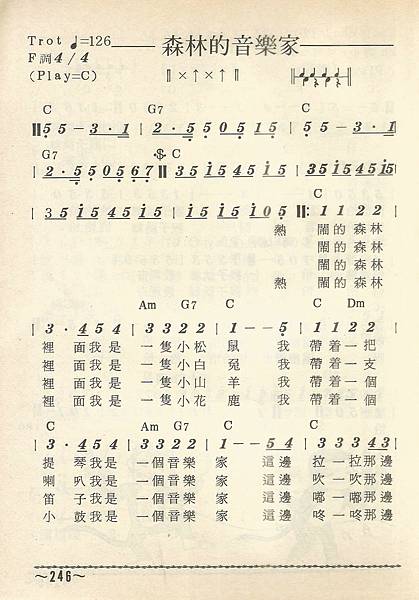 Trot ♩=126 森林的音樂家
F調4/4
(Play=C) 〒×↑×↑〒
C G7
‖5 5 - 3·1 | 2·5 5 0 5 1 5 | 5 5 - 3·1 |
G7 C
| 2·5 5 0 5 6 7 ‖ 3 5 1 5 4 5 1 5 | 3 5 1 5 4 5 1 5 |
C
| 3 5 1 5 4 5 1 5 | 1 5 1 5 1 0 5 ‖: 1 1 2 2
熱 鬧的森林
鬧的森林
鬧的森林
熱 鬧的森林
Am G7 C C Dm
| 3·4 5 4 | 3 3 2 2 | 1 - - 5 | 1 1 2 2
裡 面我是 一隻小松 鼠 我 帶着一把
裡 面我是 一隻小白 兔 我 帶着一支
裡 面我是 一隻小山 羊 我 帶着一個
裡 面我是 一隻小花 鹿 我 帶着一個
C Am G7 C C
| 3·4 5 4 | 3 3 2 2 | 1 - - 5 4 | 3 3 3 4 3
提 琴我是 一個音樂 家 這邊 拉一拉那邊
喇 叭我是 一個音樂 家 這邊 吹一吹那邊
笛 子我是 一個音樂 家 這邊 嘟一嘟那邊
小 鼓我是 一個音樂 家 這邊 咚一咚那邊
～246～